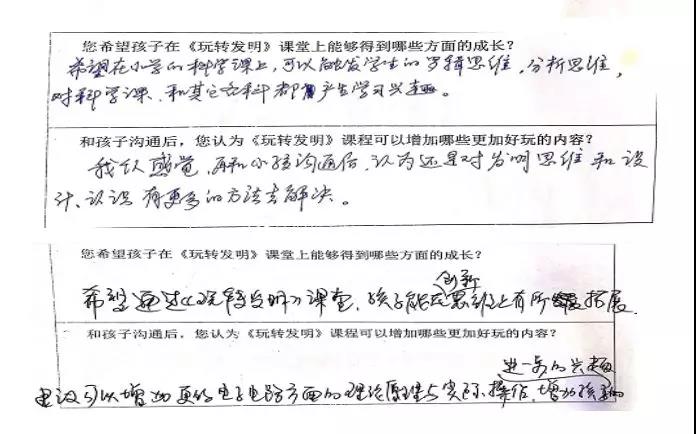 您希望孩子在《玩转发明》课堂上能够得到哪些方面的成长?
希望在小学的科学课上,可以触发学生的逻辑思维,分析思维,
对科学课、和其它各科都产生学习兴趣。
和孩子沟通后,您认为《玩转发明》课程可以增加哪些更加好玩的内容?
感觉,再和小孩沟通后,认为还是对发明思维和设
计、认识有更多的方法去解决。
您希望孩子在《玩转发明》课堂上能够得到哪些方面的成长?
创新
希望通过《玩转发明》课堂,孩子能在思维上有所拓展
和孩子沟通后,您认为《玩转发明》课程可以增加哪些更加好玩的内容?
进一步的兴趣
建议可以增加更多电子电路方面的理论原理与实际操作,增加孩子的